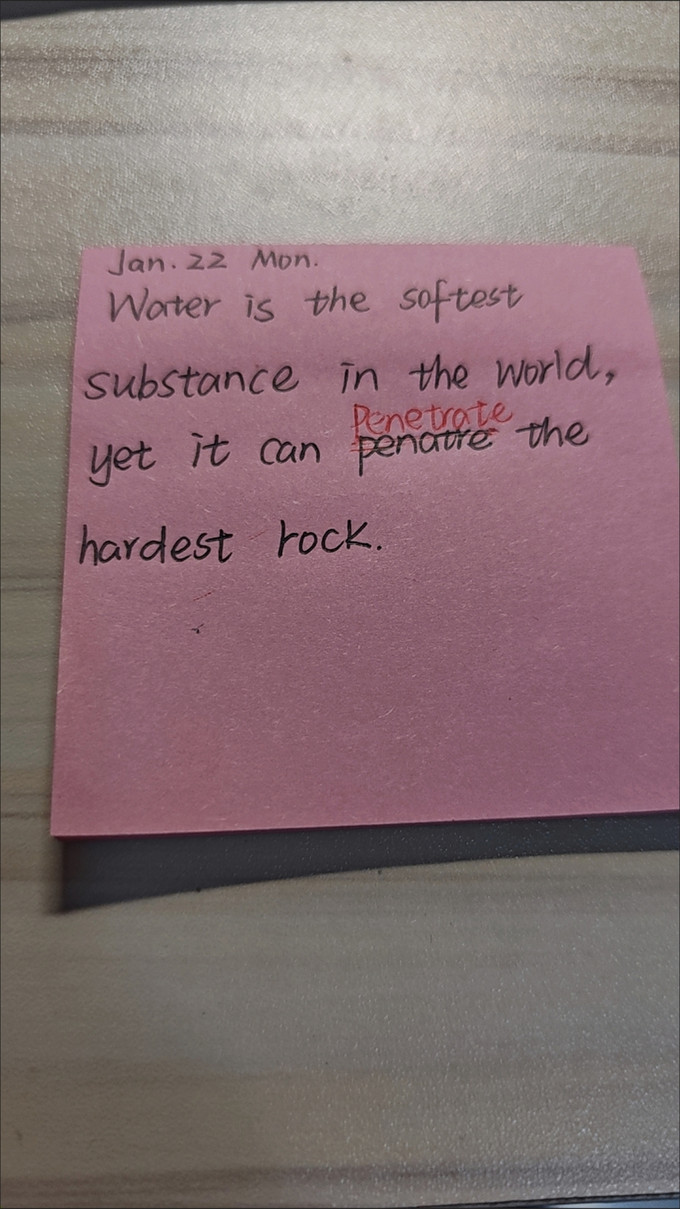 Jan. 22 Mon.
Water is the softest
substance in the world,
Penetrate
yet it can penatre the
hardest rock.